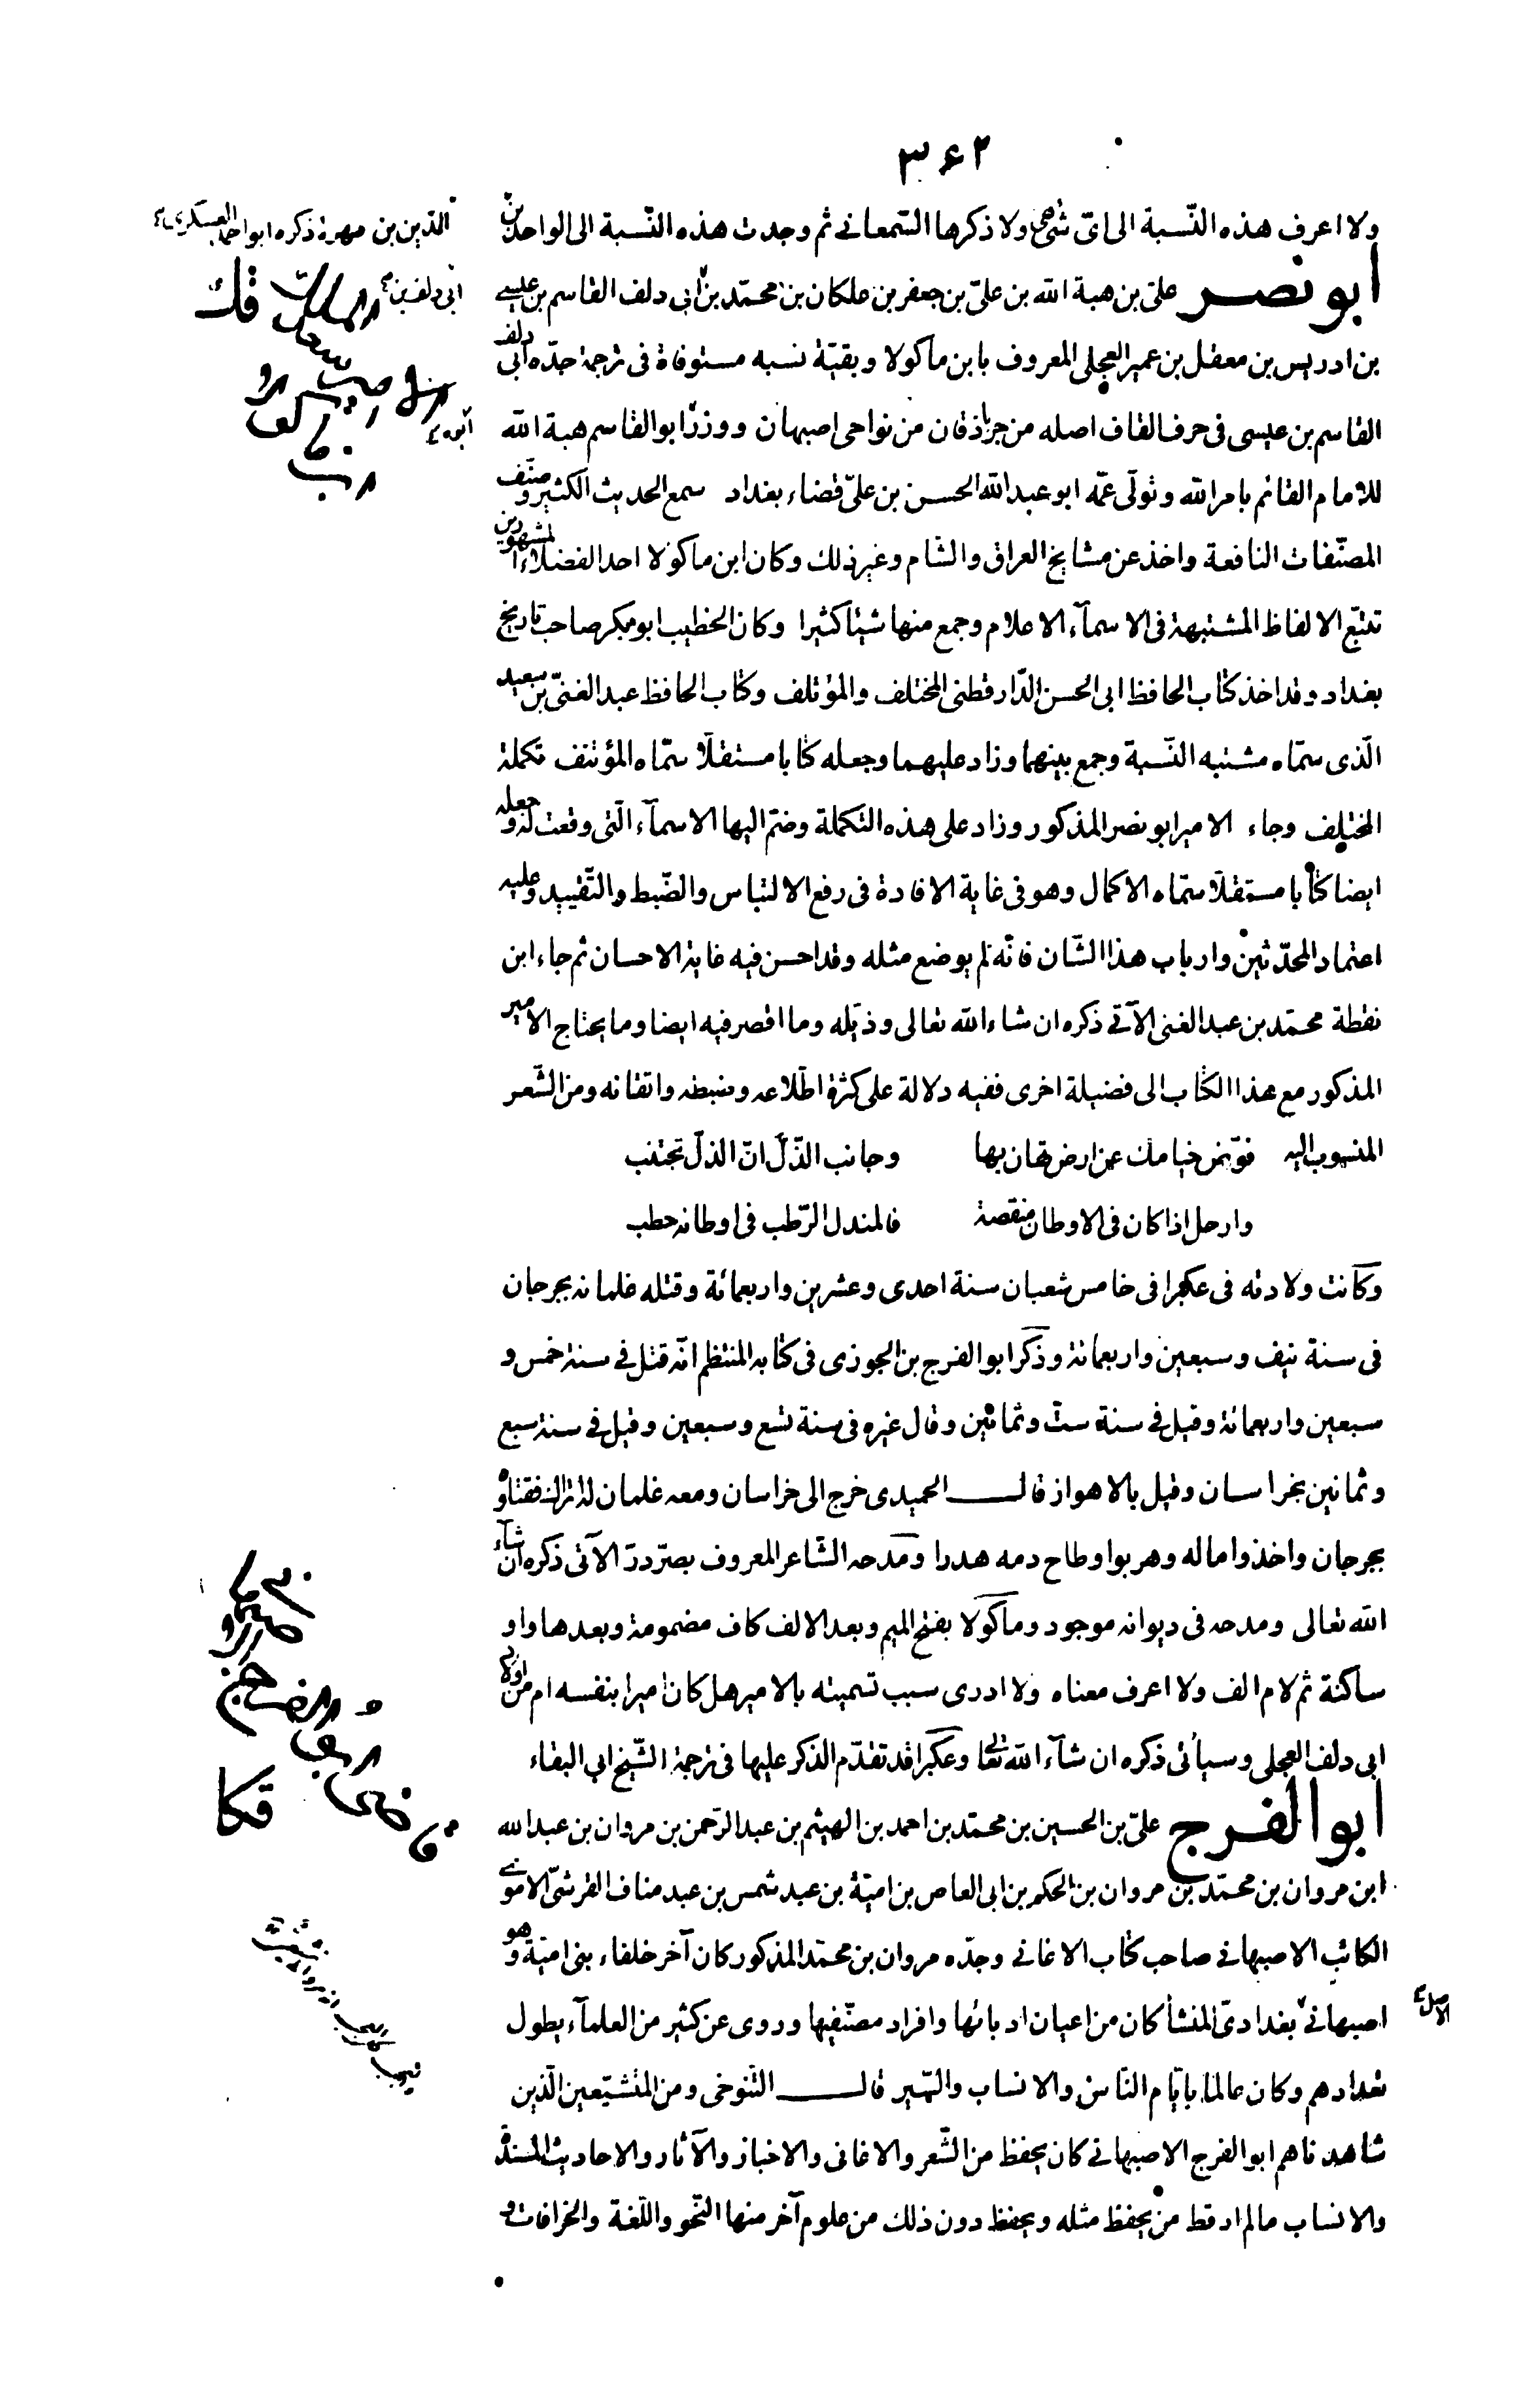 ٣٤٢
ولا اعرف هذه النّسبة الى اىّ شئ هى ولا ذكرها السّمعانى ثم وجدت هذه النّسبة الى الواحد بن
الذين بن مهرة ذكره ابو احمد العسكرى
ابو نصر علىّ بن هبة الله بن علىّ بن جعفر بن علكان بن محمّد بن ابى دلف القاسم بن عيسى
ابى دلف بن
بن ادريس بن معقل بن عمير العجلى المعروف بابن ماكولا وبقيّة نسبه مستوفاة فى ترجمة جدّه ابى دلف
القاسم بن عيسى فى حرف القاف اصله من جرباذقان من نواحى اصبهان ووزر ابو القاسم هبة الله
ابوه
للامام القائم بامر الله وتولّى عمّه ابو عبد الله الحسن بن علىّ قضاء بغداد سمع الحديث الكثير وصنّف
المصنّفات النافعة واخذ عن مشايخ العراق والشام وغير ذلك وكان ابن ماكولا احد الفضلاء المشهورين
تتبّع الالفاظ المشتبهة فى الاسمآء الاعلام وجمع منها شيئا كثيرا وكان الخطيب ابو بكر صاحب تاريخ
بغداد وقد اخذ كتاب الحافظ ابى الحسن الدّارقطنى المختلف والمؤتلف وكتاب الحافظ عبد الغنىّ بن سعيد
الّذى سمّاه مشتبه النّسبة وجمع بينهما وزاد عليهما وجعله كتابا مستقلّا سمّاه المؤتنف تكملة
المختلف وجاء الامير ابو نصر المذكور وزاد على هذه التكملة وضمّ اليها الاسمآء الّتى وقعت له وجعله
ايضا كتابا مستقلّا سمّاه الاكمال وهو فى غاية الافادة فى رفع الالتباس والضّبط والتّقييد وعليه
اعتماد المحدّثين وارباب هذا الشّان فانّه لم يوضع مثله وقد احسن فيه غاية الاحسان ثم جاء ابن
نقطة محمّد بن عبد الغنى الآتى ذكره ان شاء الله تعالى وذيّله وما اقصر فيه ايضا وما يحتاج الامير
المذكور مع هذا الكتاب الى فضيلة اخرى ففيه دلالة على كثرة اطّلاعه وضبطه واتقانه ومن الشّعر
المنسوب اليه قوّض خيامك عن ارض تهان بها وجانب الذّلّ انّ الذلّ تجتنب
وارحل اذا كان فى الاوطان منقصة فالمندل الرّطب فى اوطانه حطب
وكانت ولادته فى عكبرا فى خامس شعبان سنة احدى وعشرين واربعمائة وقتله غلمانه بجرجان
فى سنة نيف وسبعين واربعمائة وذكر ابو الفرج بن الجوزى فى كتابه المنتظم انّه قتل فى سنة خمس و
سبعين واربعمائة وقيل فى سنة ستّ وثمانين وقال غيره فى سنة تسع وسبعين وقيل فى سنة سبع
وثمانين بخراسان وقيل بالاهواز قال الحميدى خرج الى خراسان ومعه غلمان له اتراك فقتلوه
بجرجان واخذوا ماله وهربوا وطاح دمه هدرا ومدحه الشّاعر المعروف بصرّدرّ الآتى ذكره ان شآء
الله تعالى ومدحه فى ديوانه موجود وماكولا بفتح الميم وبعد الالف كاف مضمومة وبعدها واو
ساكنة ثم لام الف ولا اعرف معناه ولا ادرى سبب تسميته بالامير هل كان اميرا بنفسه ام من اولاد
ابى دلف العجلى وسيأتى ذكره ان شآء الله تعالى وعكبرا قد تقدّم الذكر عليها فى ترجمة الشّيخ ابى البقاء
ابو الفرج علىّ بن الحسين بن محمّد بن احمد بن الهيثم بن عبد الرّحمن بن مروان بن عبد الله
ابن مروان بن محمّد بن مروان بن الحكم بن ابى العاص بن اميّة بن عبد شمس بن عبد مناف القرشىّ الاموى
الكاتب الاصبهانى صاحب كتاب الاغانى وجدّه مروان بن محمّد المذكور كان آخر خلفاء بنى اميّة وهو
اصبهانى بغدادىّ المنشأ كان من اعيان ادبائها وافراد مصنّفيها وروى عن كثير من العلمآء يطول
الاصل
تعدادهم وكان عالما بايّام النّاس والانساب والسّير قال التّنوخى ومن المتشيّعين الّذين
شاهدناهم ابو الفرج الاصبهانى كان يحفظ من الشّعر والاغانى والاخبار والآثار والاحاديث المسندة
والانساب ما لم ار قط من يحفظ مثله ويحفظ دون ذلك من علوم آخر منها النّحو واللّغة والخرافات و